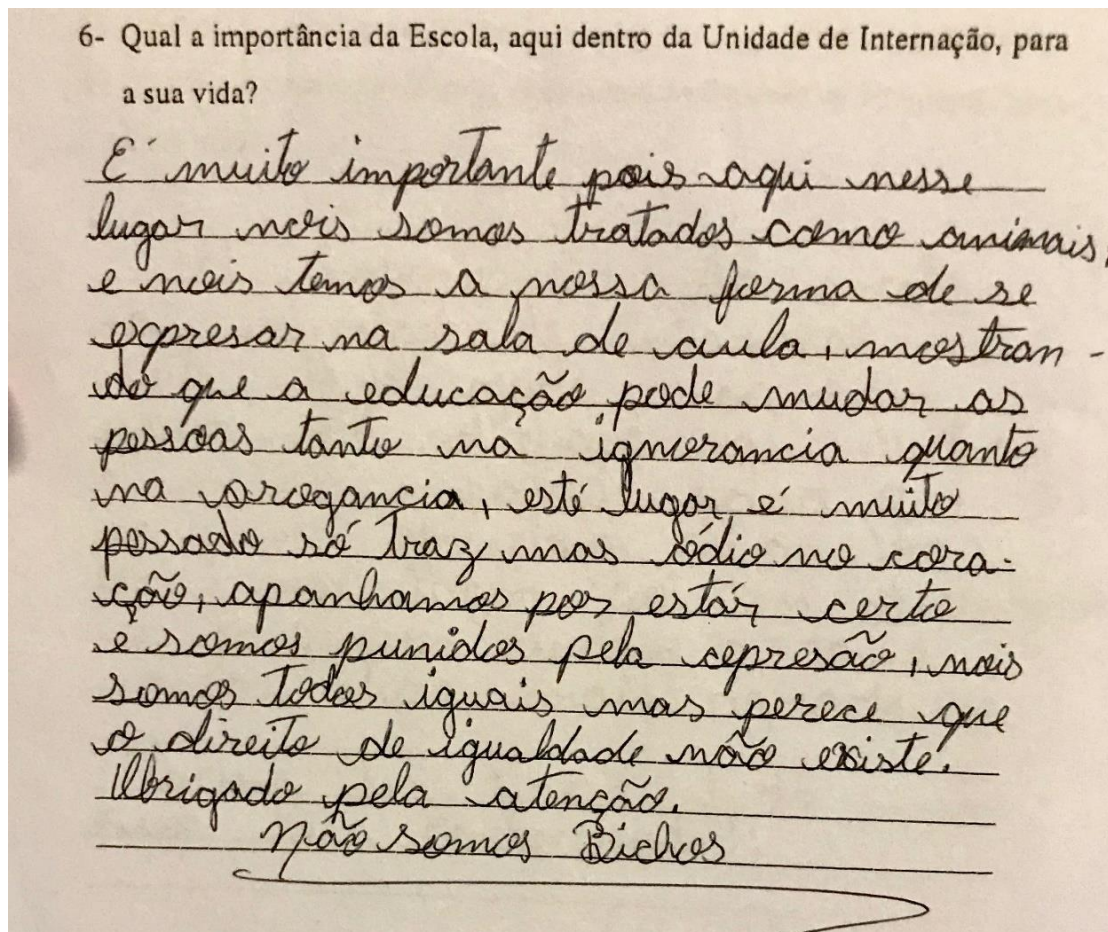 6- Qual a importância da Escola, aqui dentro da Unidade de Internação, para
a sua vida?
É muito importante pois aqui nesse
lugar nois somos tratados como animais,
e nois temos a nossa forma de se
expresar na sala de aula, mostran-
do que a educação pode mudar as
pessoas tanto na ignorancia quanto
na arogancia, esté lugar é muito
pessado só traz mas ódio no cora-
ção, apanhamos por estár certo
e somos punidos pela represão, nois
somos todos iguais mas perece que
o direito de igualdade não existe.
Obrigado pela atenção.
Não somos Bichos